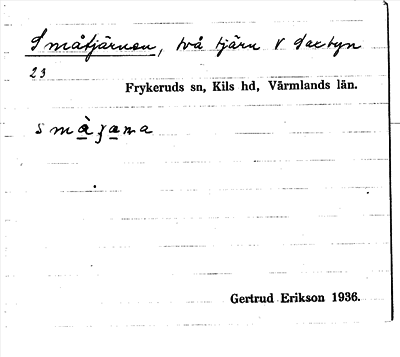 Småtjärnen, två tjärn V Saxtyn
23
Frykeruds sn, Kils hd, Värmlands län.
Gertrud Erikson 1936.